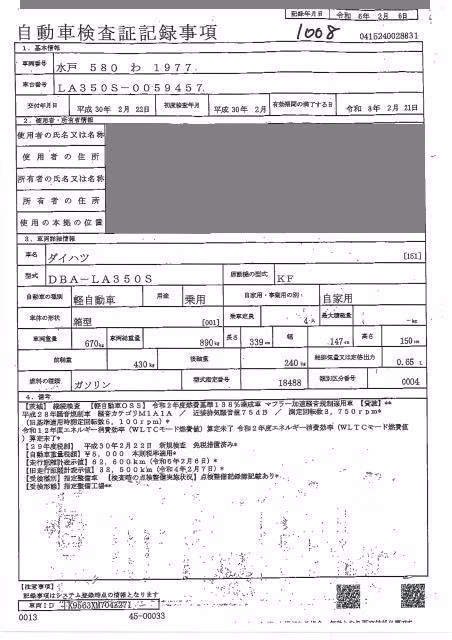 記録年月日 令和 6年 2月 6日
自動車検査証記録事項 1008 0415240028831
1．基本情報
車両番号 水戸 580 わ 1977
車台番号 LA350S-0059457
交付年月日 平成 30年 2月 22日 初度検査年月 平成 30年 2月 有効期間の満了する日 令和 8年 2月 21日
2．使用者・所有者情報
使用者の氏名又は名称
使用者の住所
所有者の氏名又は名称
所有者の住所
使用の本拠の位置
3．車両詳細情報
車名 ダイハツ [151]
型式 DBA-LA350S 原動機の型式 KF
自動車の種別 軽自動車 用途 乗用 自家用・事業用の別 自家用
車体の形状 箱型 [001] 乗車定員 4人 最大積載量 －kg
車両重量 670kg 車両総重量 890kg 長さ 339cm 幅 147cm 高さ 150cm
前軸重 430kg 後軸重 240kg 総排気量又は定格出力 0.65 L
燃料の種類 ガソリン 型式指定番号 18488 類別区分番号 0004
4．備考
【茨城】 継続検査 【軽自動車OSS】 令和2年度燃費基準138％達成車 マフラー加速騒音規制適用車 【貸渡】**
平成28年騒音規制車 騒音カテゴリM1A1A ／ 近接排気騒音値75dB ／ 測定回転数3，750rpm*
【旧基準適用時測定回転数5，100rpm】*
令和12年度エネルギー消費効率（WLTCモード燃費値）算定未了 令和2年度エネルギー消費効率（WLTCモード燃費値
）算定未了*
【29年度税制】 平成30年2月22日 新規検査 免税措置済み*
【自動車重量税額】￥5，000 本則税率適用*
【走行距離計表示値】62，600km（令和6年2月6日）
【旧走行距離計表示値】32，500km（令和4年2月7日）*
【受検種別】指定整備車 【検査時の点検整備実施状況】点検整備記録簿記載あり*
【受検形態】指定整備工場**
【注意事項】
記録事項はシステム登録時点の情報となります
車両ID K9563XM7043271
0013 45-00033